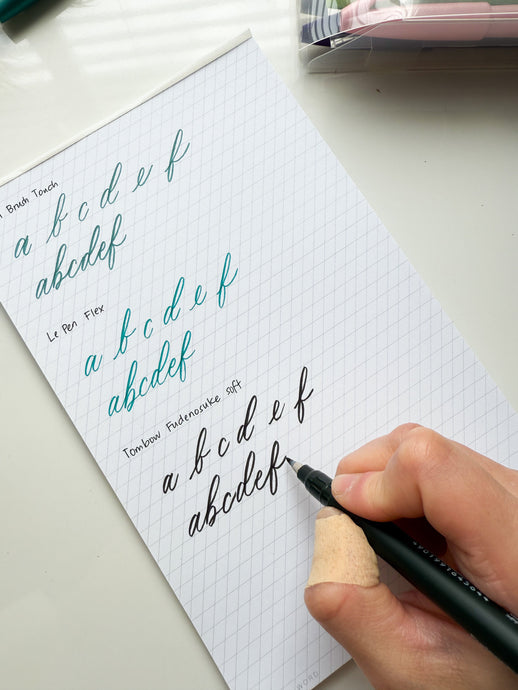 Brush Touch
a b c d e f
abcdef
Le Pen Flex
a b c d e f
abcdef
Tombow Fudenosuke soft
a b c d e f
abcdef
WORD